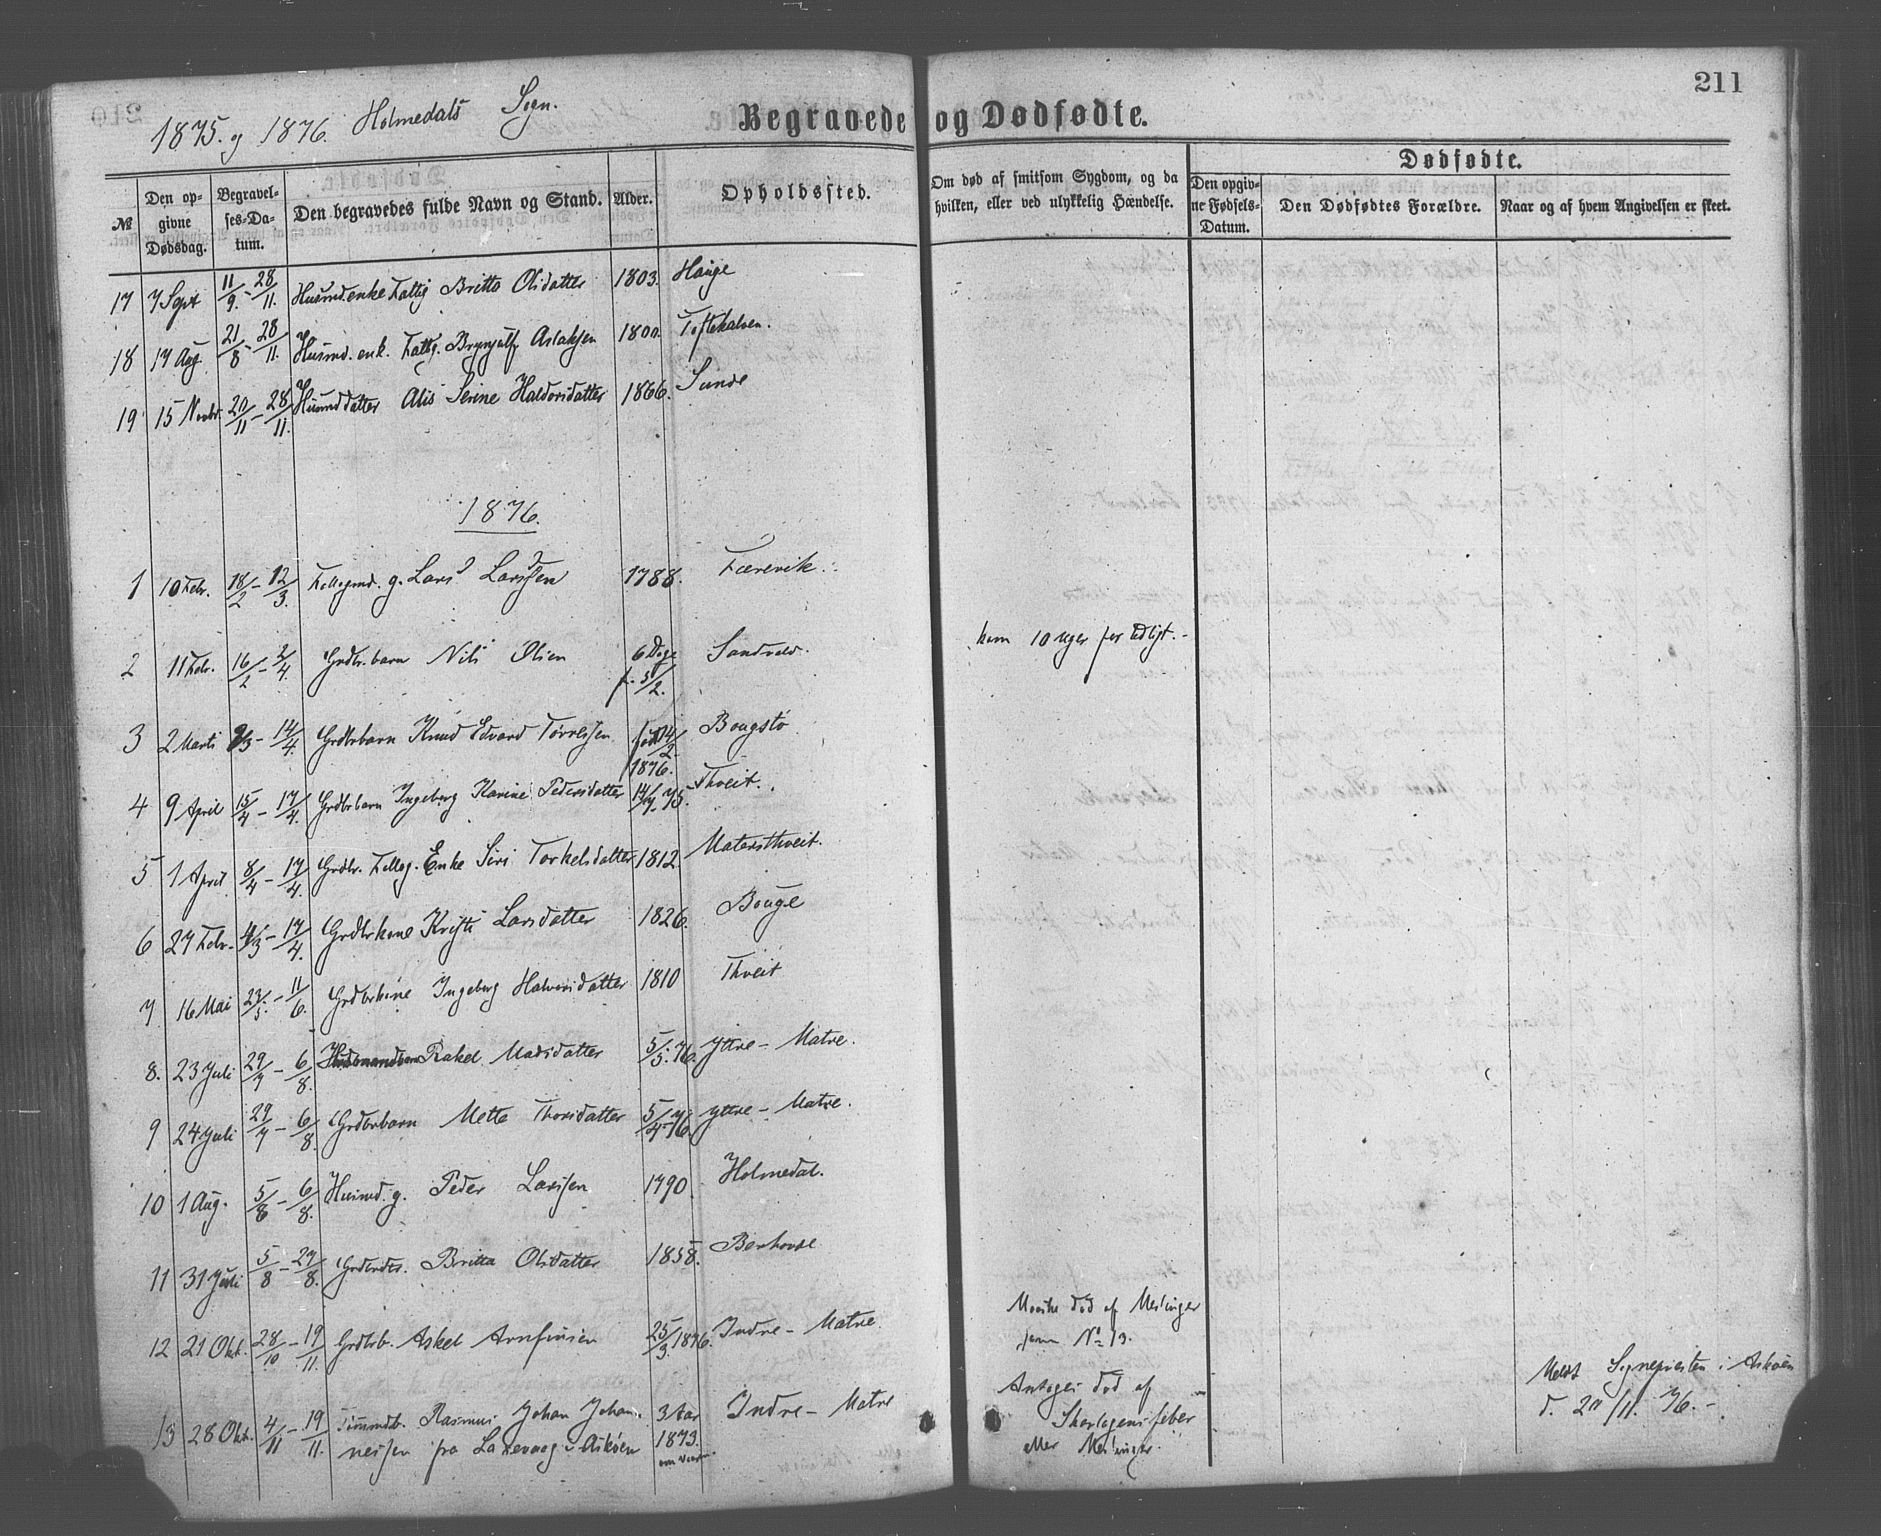 211
1875. og 1876. Holmedals Sogn.
Begravede og Dødfødte.
Dødfødte.
№ Den opgivne Dødsdag. Begravelses-Datum. Den begravedes fulde Navn og Stand. Alder. Opholdssted. Om død af smitsom Sygdom, og da hvilken, eller ved ulykkelig Hændelse. Den opgivne Fødsels-Datum. Den Dødfødtes Forældre. Naar og af hvem Angivelsen er skeet.
17 7 Sept 11/9 - 28/11. Husmd.enke Fattig Britta Olsdatter 1803. Hauge
18 17 Aug. 21/8 - 28/11. Husmd. enk. Fattg. Brynjulf Aslaksen 1800. Toftekalven.
19 15 Novbr. 20/11 - 28/11. Husmddatter Alis Serine Haldorsdatter 1866. Sunde
1876.
1 10 Febr. 18/2 - 12/3. g. Lars Larssen 1788. Færevik.
2 11 Febr. 16/2 - 2/4. Grdbr.barn Nils Olsen 6 Dage f. 5/2. Sandvold. kom 10 Uger for tidligt.
3 2 Marts /3 - 14/4. Grdbrbarn Knud Edvard Tørressen født 14/2 1876. Bougstø
4 9 April 15/4 - 17/4. Grdbrbarn Ingeborg Karine Pedersdatter 14/7 75. Thveit.
5 1 April 8/4 - 17/4. Grdbr. Fellog. Enke Siri Torkelsdatter 1812. Matersthveit.
6 27 Febr. 4/3 - 17/4. Grdbrkone Kristi Larsdatter 1826. Bouge
7 16 Mai 23/5 - 11/6. Grdbrkone Ingeborg Halvorsdatter 1810 Thveit
8. 23 Juli 29/7 - 6/8. Rakel Madsdatter 5/5. 76. Yttre - Matre.
9 24 Juli 29/7 - 6/8. Grdbrbarn Mette Thorsdatter 5/4 76. Yttre - Matre.
10 1 Aug. 5/8 - 6/8. Husmd. g. Peder Larssen 1790. Holmedal.
11 31 Juli 5/8 - 27/8. Britta Olsdatter 1858. Berhovde
12 21 Okt. 28/10 - 19/11. Grdbrb. Askel Arnfinsen 25/3 1876. Indre - Matre. Maaske død af Meslinger
som No 13.
13 28 Okt. 4/11 - 19/11. Rasmus Johan Johan- 3 Aar Indre - Matre Antages død af Meldt Sognepresten i Askøen
nessen fra i Askøen 1873. Skarlagensfeber d. 20/11. 76.
eller Meslinger.